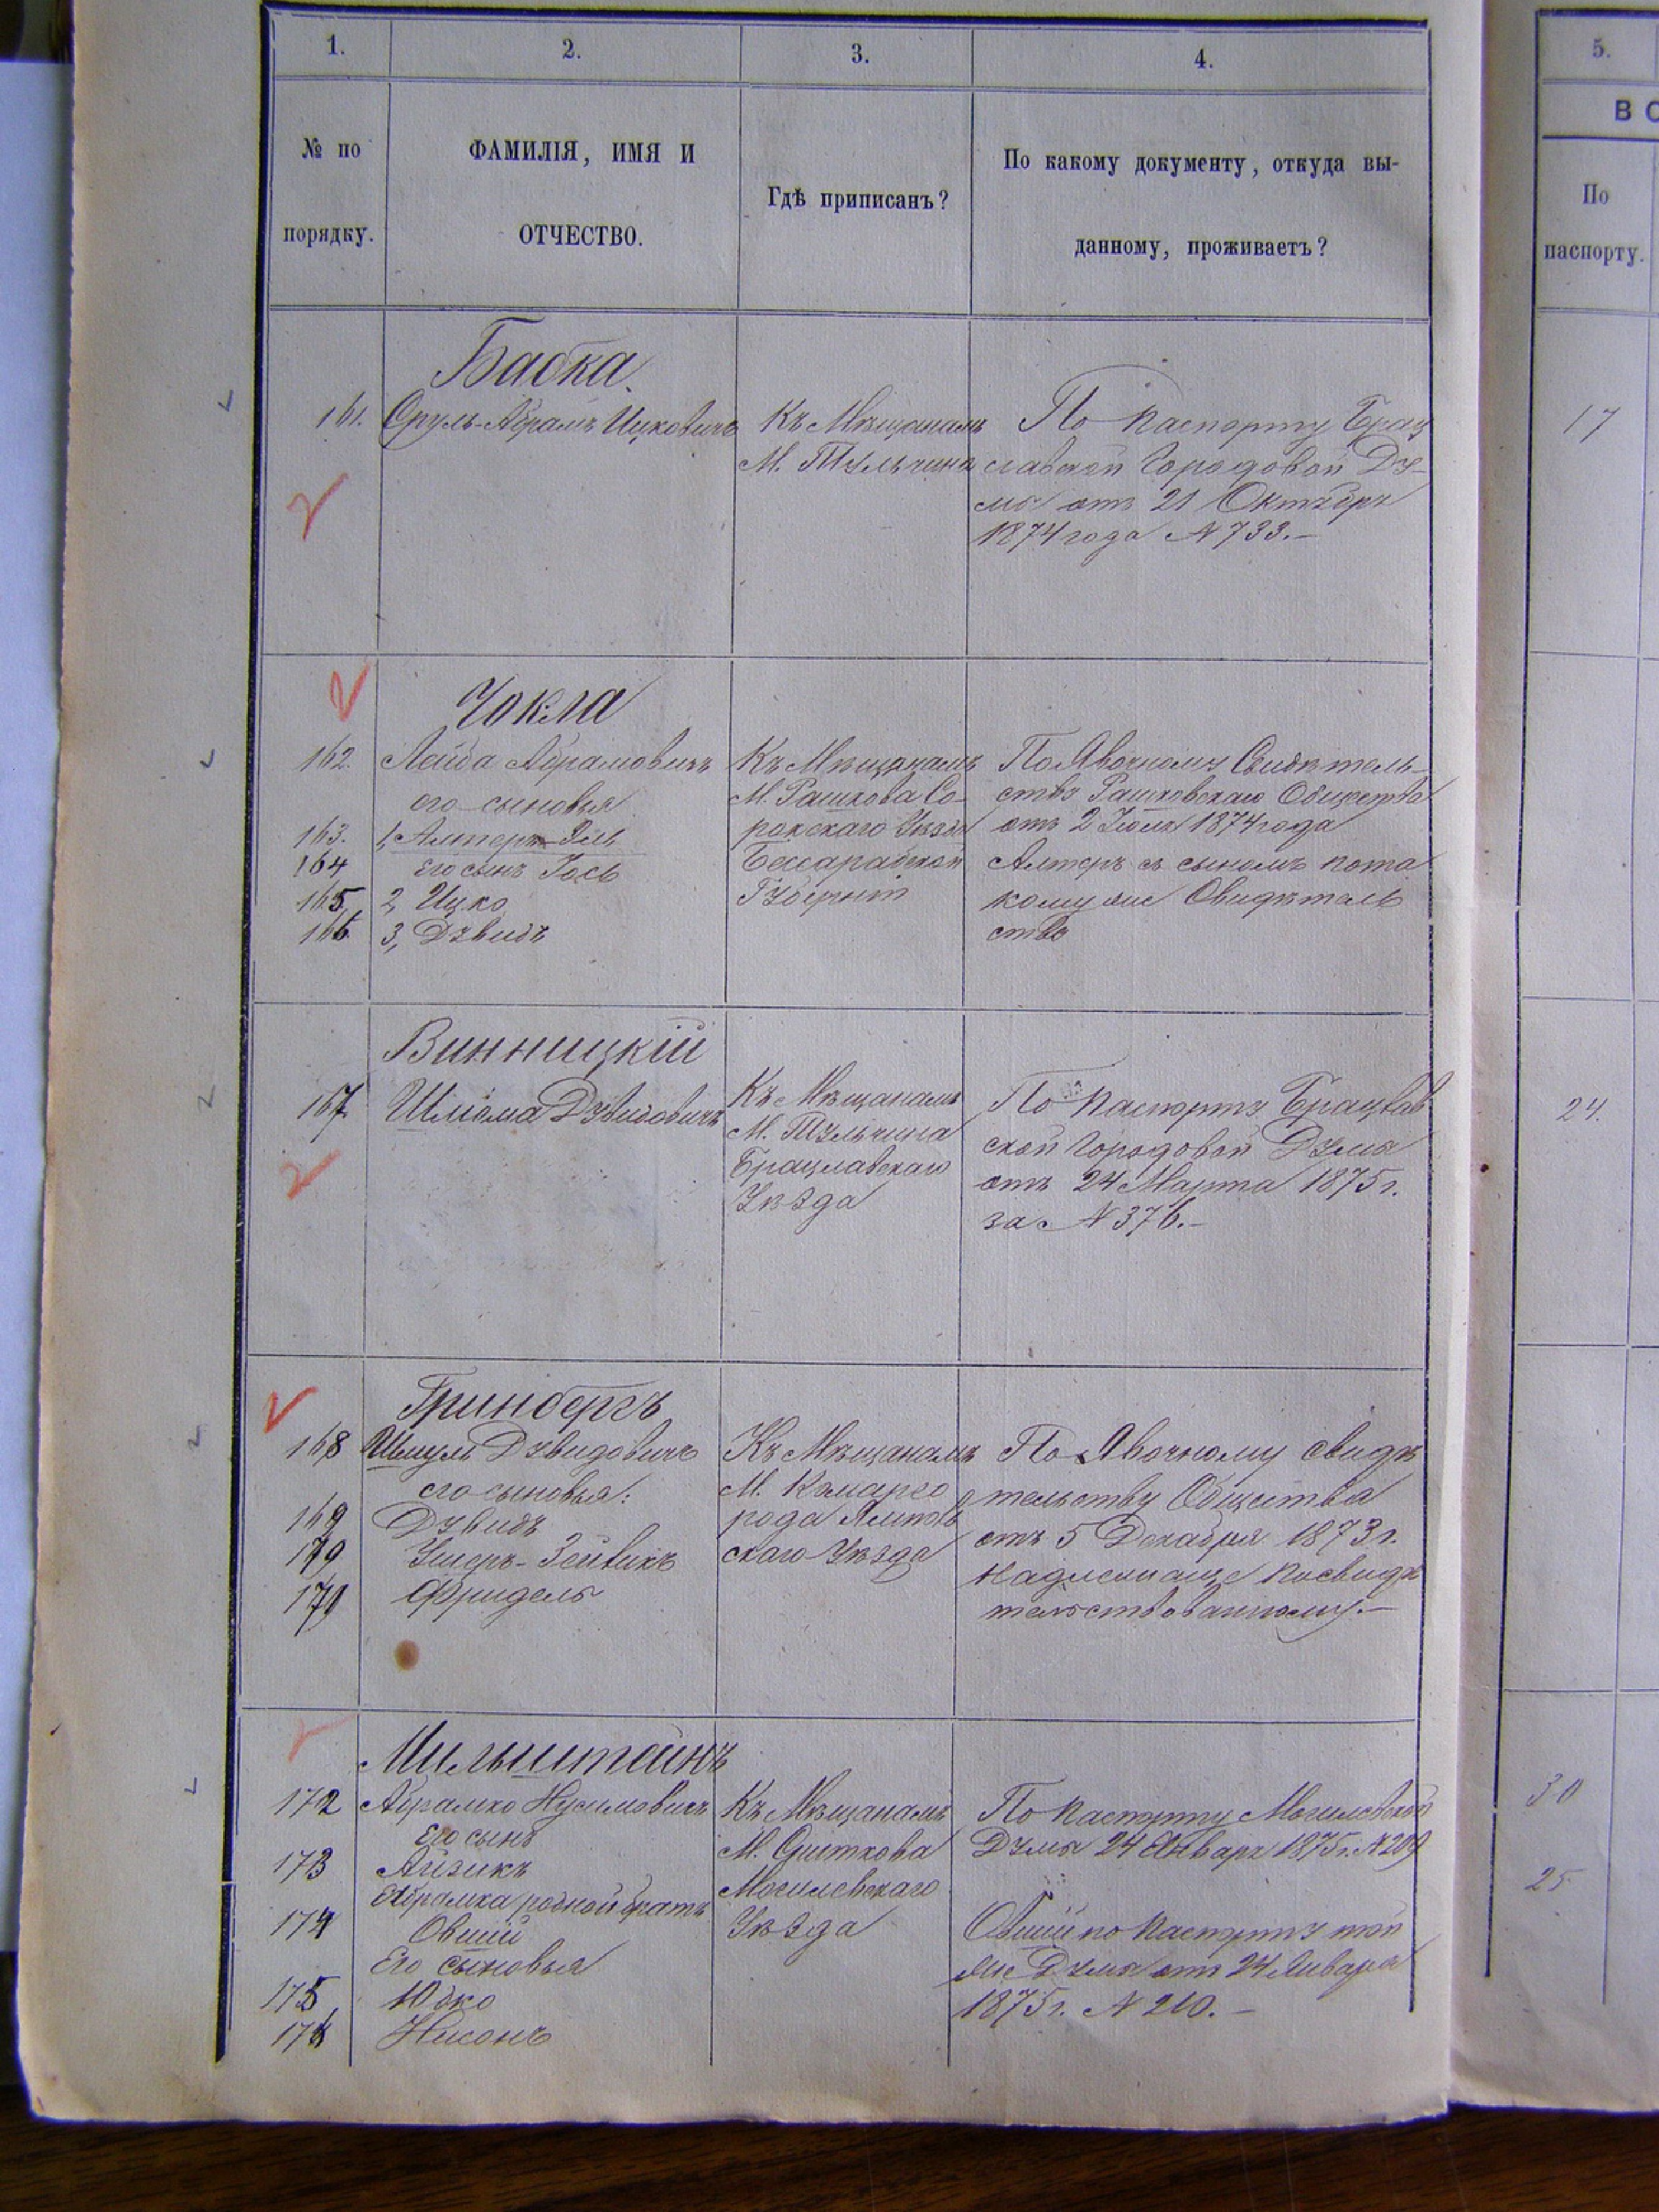 1.
2.
3.
4.
5.
№ по
порядку.
ФАМИЛІЯ, ИМЯ И
ОТЧЕСТВО.
Гдѣ приписанъ?
По какому документу, откуда вы-
данному, проживаетъ?
По
паспорту.
Бабка
161. Сруль-Абрамъ Ицковичъ
Къ Мѣщанамъ
М. Тульчина
По Паспорту Брац
лавской Городовой Ду-
мы отъ 21 Октября
1874 года № 733.—
17
Чокла
162. Лейба Абрамовичъ
его сыновья
163. 1, Алтеръ-
164 Его сынъ Іось
165. 2, Ицко
166 3, Дувидъ
Къ Мѣщанамъ
М. Рашкова Со-
рокскаго Уѣзда
Бессарабской
Губерніи
По Явочному Свидѣтель-
ству Рашковскаго Общества
отъ 2 Іюля 1874 года
Алтеръ съ сыномъ пота
кому же Свидѣтель
ству
Винницкій
167 Шлёма Дувидовичъ
Къ Мѣщанамъ
М. Тульчина
Брацлавскаго
Уѣзда
По Паспорту Брацлав
ской Городовой Думы
отъ 24 Марта 1875 г.
за № 376.—
24.
Гринбергъ
168 Шмуль Дувидовичъ
его сыновья:
169 Дувидъ
170 Ушеръ-Зейвикъ
171 Фридель
Къ Мѣщанамъ
М. Комарго
рода Ямполь
скаго Уѣзда
По Явочному свидѣ
тельству Общества
отъ 5 Декабря 1873 г.
Надлежаще Посвидѣ
тельствованному.—
Мильштейнъ
172 Абрамко Нусимовичъ
Его сынъ
173 Айзикъ
Абрамка родной братъ
174 Овшій
Его сыновья
175 Юдко
176 Нисонъ
Къ Мѣщанамъ
М. Сниткова
Могилевскаго
Уѣзда
По Паспорту Могилевской
Думы 24 Января 1875 г. № 209
Овшій по Паспорту той
же Думы отъ 24 Января
1875 г. № 210.—
30
25